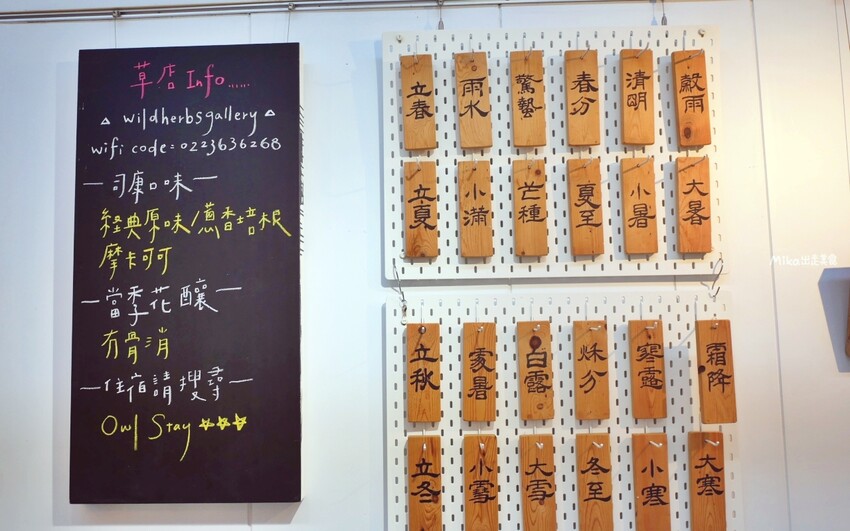 草店 Info......
△ wildherbsgallery △
wifi code: 0223636268
— 司康口味 —
經典原味/蔥香培根
摩卡可可
— 當季花釀 —
冇骨消
— 住宿請搜尋 —
Owl Stay
立春 雨水 驚蟄 春分 清明 穀雨
立夏 小滿 芒種 夏至 小暑 大暑
立秋 處暑 白露 秌分 寒露 霜降
立冬 小雪 大雪 冬至 小寒 大寒
Mika出走美食